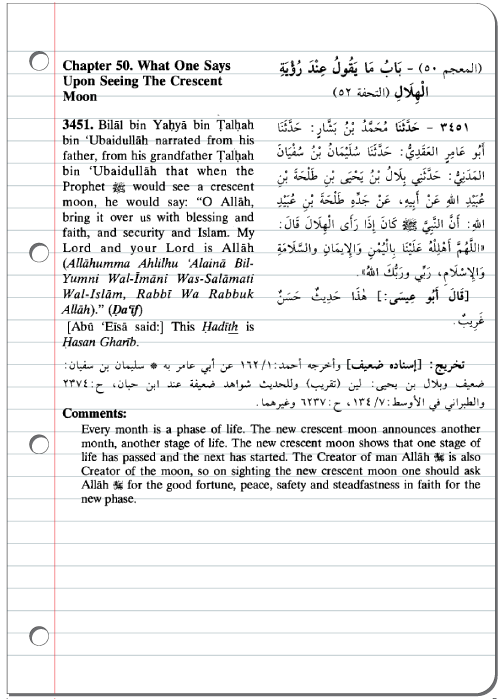 Chapter 50. What One Says
Upon Seeing The Crescent
Moon
(المعجم ٥٠) - بَابُ مَا يَقُولُ عِنْدَ رُؤْيَةِ
الْهِلَالِ (التحفة ٥٢)
3451. Bilāl bin Yaḥyā bin Ṭalḥah
bin ‘Ubaidullāh narrated from his
father, from his grandfather Ṭalḥah
bin ‘Ubaidullāh that when the
Prophet ﷺ would see a crescent
moon, he would say: “O Allāh,
bring it over us with blessing and
faith, and security and Islam. My
Lord and your Lord is Allāh
(Allāhumma Ahlilhu ‘Alainā Bil-
Yumni Wal-Īmāni Was-Salāmati
Wal-Islām, Rabbī Wa Rabbuk
Allāh).” (Ḍa‘īf)
[Abū ‘Eīsā said:] This Ḥadīth is
Ḥasan Gharīb.
٣٤٥١ - حَدَّثَنَا مُحَمَّدُ بْنُ بَشَّارٍ: حَدَّثَنَا
أَبُو عَامِرٍ الْعَقَدِيُّ: حَدَّثَنَا سُلَيْمَانُ بْنُ سُفْيَانَ
الْمَدَنِيُّ: حَدَّثَنِي بِلَالُ بْنُ يَحْيَى بْنِ طَلْحَةَ بْنِ
عُبَيْدِ اللهِ عَنْ أَبِيهِ، عَنْ جَدِّهِ طَلْحَةَ بْنِ عُبَيْدِ
اللهِ: أَنَّ النَّبِيَّ ﷺ كَانَ إِذَا رَأَى الْهِلَالَ قَالَ:
«اللَّهُمَّ أَهْلِلْهُ عَلَيْنَا بِالْيُمْنِ وَالْإِيمَانِ والسَّلَامَةِ
وَالْإِسْلَامِ، رَبِّي وَرَبُّكَ اللهُ».
[قَالَ أَبُو عِيسَى:] هٰذَا حَدِيثٌ حَسَنٌ
غَرِيبٌ.
تخريج: [إسناده ضعيف] وأخرجه أحمد: ١/ ١٦٢ عن أبي عامر به * سليمان بن سفيان:
ضعيف وبلال بن يحيى: لين (تقريب) وللحديث شواهد ضعيفة عند ابن حبان، ح: ٢٣٧٤
والطبراني في الأوسط: ٧/ ١٣٤، ح: ٦٢٣٧ وغيرهما.
Comments:
Every month is a phase of life. The new crescent moon announces another
month, another stage of life. The new crescent moon shows that one stage of
life has passed and the next has started. The Creator of man Allāh ﷻ is also
Creator of the moon, so on sighting the new crescent moon one should ask
Allāh ﷻ for the good fortune, peace, safety and steadfastness in faith for the
new phase.